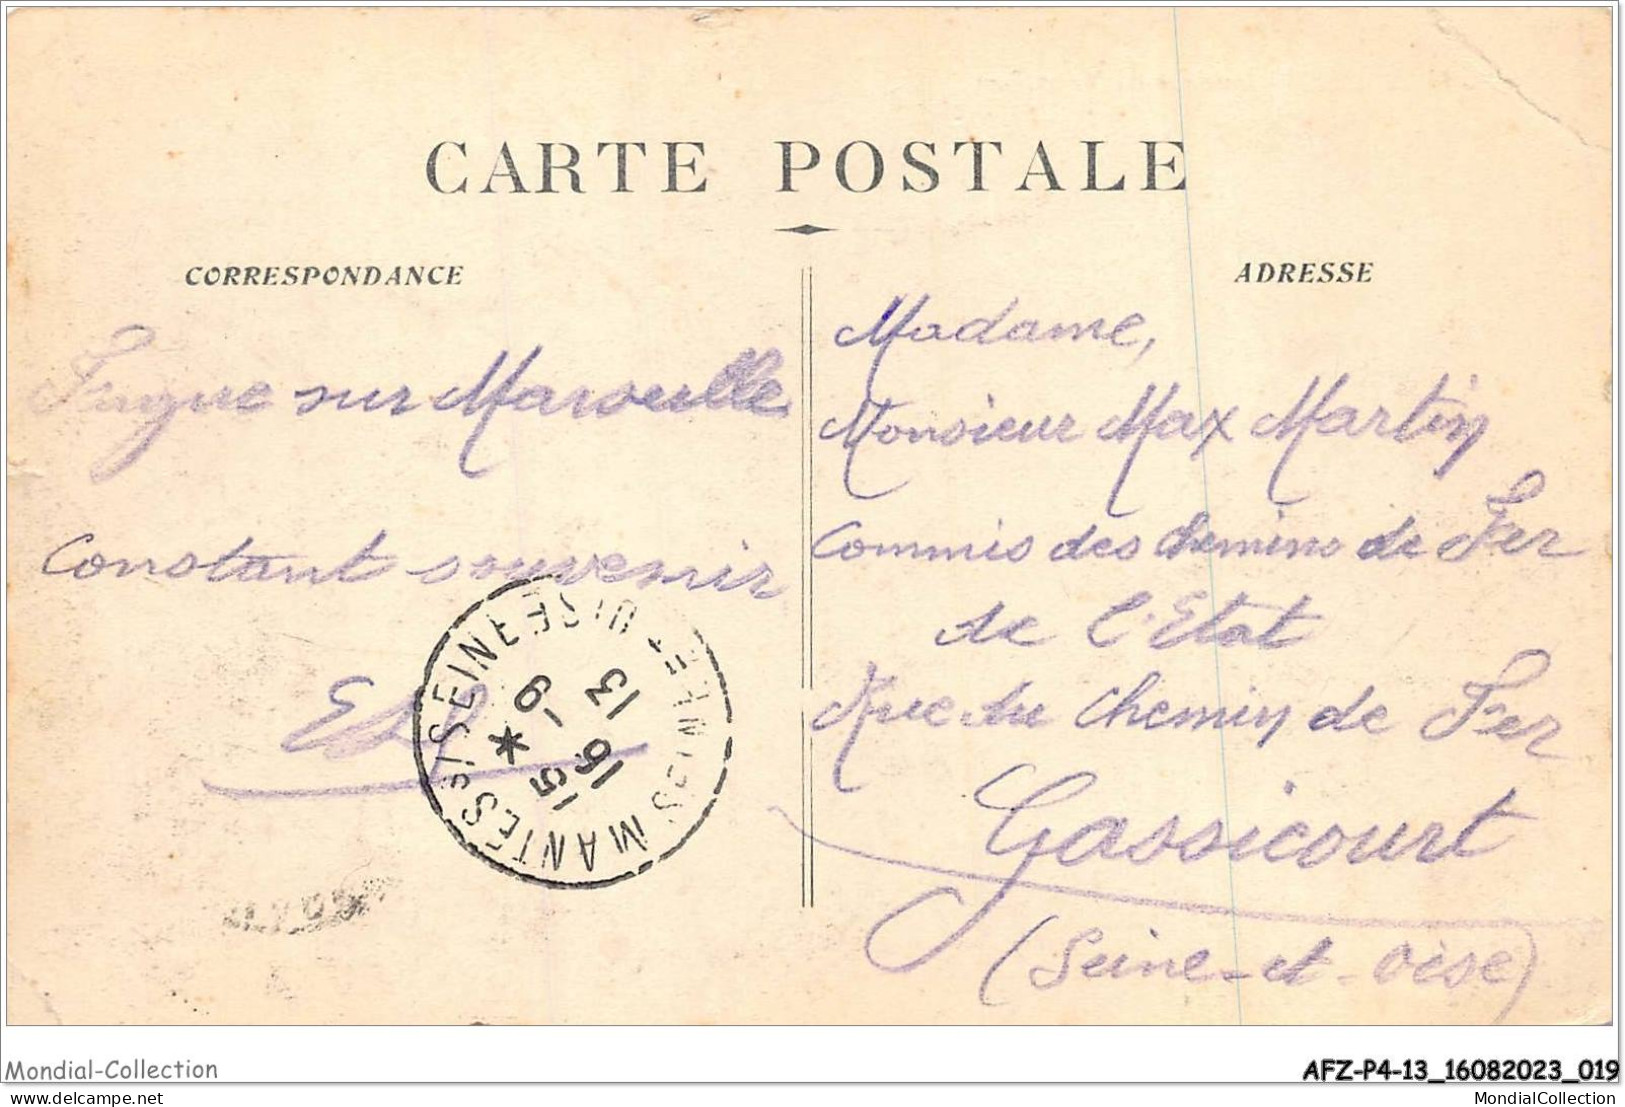 CARTE POSTALE
CORRESPONDANCE
ADRESSE
Fugue sur Marseille
Constant souvenir
Madame,
Monsieur Max Martin
Commis des Chemins de Fer
de l'Etat
Rue du Chemin de Fer
Gassicourt
(Seine-et-Oise)
MANTES S/SEINE
SEINE-ET-OISE
15
16 -9
13
Mondial-Collection
AFZ-P4-13_16082023_019
www.delcampe.net
MondialCollection